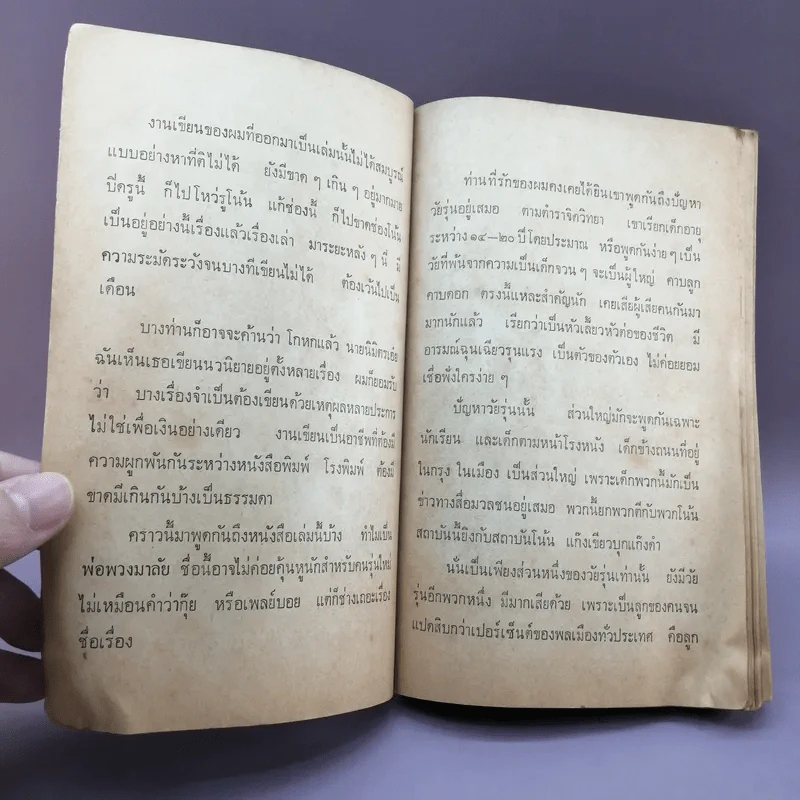 งานเขียนของผมที่ออกมาเป็นเล่มนั้นไม่ได้สมบูรณ์
แบบอย่างหาที่ติไม่ได้ ยังมีขาด ๆ เกิน ๆ อยู่มากมาย
ปิดรูนี้ ก็ไปโหว่รูโน้น แก้ช่องนี้ ก็ไปขาดช่องโน้น
เป็นอยู่อย่างนี้เรื่องแล้วเรื่องเล่า มาระยะหลัง ๆ นี้ มี
ความระมัดระวังจนบางทีเขียนไม่ได้ ต้องเว้นไปเป็น
เดือน
บางท่านก็อาจจะค้านว่า โกหกแล้ว นายนิมิตรเอ๋ย
ฉันเห็นเธอเขียนนวนิยายอยู่ตั้งหลายเรื่อง ผมก็ยอมรับ
ว่า บางเรื่องจำเป็นต้องเขียนด้วยเหตุผลหลายประการ
ไม่ใช่เพื่อเงินอย่างเดียว งานเขียนเป็นอาชีพที่ต้องมี
ความผูกพันกันระหว่างหนังสือพิมพ์ โรงพิมพ์ ต้องมี
ขาดมีเกินกันบ้างเป็นธรรมดา
คราวนี้มาพูดกันถึงหนังสือเล่มนี้บ้าง ทำไมเป็น
พ่อพวงมาลัย ชื่อนี้อาจไม่ค่อยคุ้นหูนักสำหรับคนรุ่นใหม่
ไม่เหมือนคำว่ากุ๊ย หรือเพลย์บอย แต่ก็ช่างเถอะเรื่อง
ชื่อเรื่อง
ท่านที่รักของผมคงเคยได้ยินเขาพูดกันถึงปัญหา
วัยรุ่นอยู่เสมอ ตามตำราจิตวิทยา เขาเรียกเด็กอายุ
ระหว่าง ๑๔—๒๐ ปีโดยประมาณ หรือพูดกันง่าย ๆ เป็น
วัยที่พ้นจากความเป็นเด็กจวน ๆ จะเป็นผู้ใหญ่ คาบลูก
คาบดอก ตรงนี้แหละสำคัญนัก เคยเสียผู้เสียคนกันมา
มากนักแล้ว เรียกว่าเป็นหัวเลี้ยวหัวต่อของชีวิต มี
อารมณ์ฉุนเฉียวรุนแรง เป็นตัวของตัวเอง ไม่ค่อยยอม
เชื่อฟังใครง่าย ๆ
ปัญหาวัยรุ่นนั้น ส่วนใหญ่มักจะพูดกันเฉพาะ
นักเรียน และเด็กตามหน้าโรงหนัง เด็กข้างถนนที่อยู่
ในกรุง ในเมือง เป็นส่วนใหญ่ เพราะเด็กพวกนี้มักเป็น
ข่าวทางสื่อมวลชนอยู่เสมอ พวกนี้ยกพวกตีกับพวกโน้น
สถาบันนี้ยิงกับสถาบันโน้น แก๊งเขียวบุกแก๊งดำ
นั่นเป็นเพียงส่วนหนึ่งของวัยรุ่นเท่านั้น ยังมีวัย
รุ่นอีกพวกหนึ่ง มีมากเสียด้วย เพราะเป็นลูกของคนจน
แปดสิบกว่าเปอร์เซ็นต์ของพลเมืองทั่วประเทศ คือลูก